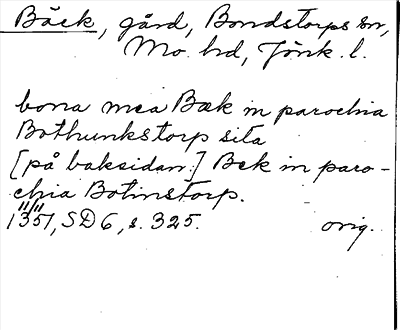 Bäck, gård, Bondstorps sn,
Mo hd, Jönk. l.
bona mea Bæk in parochia
Bothunkstorp sita
[på baksidan:] Bek in paro-
chia Botinstorp.
1351, SD 6, s. 325. orig.